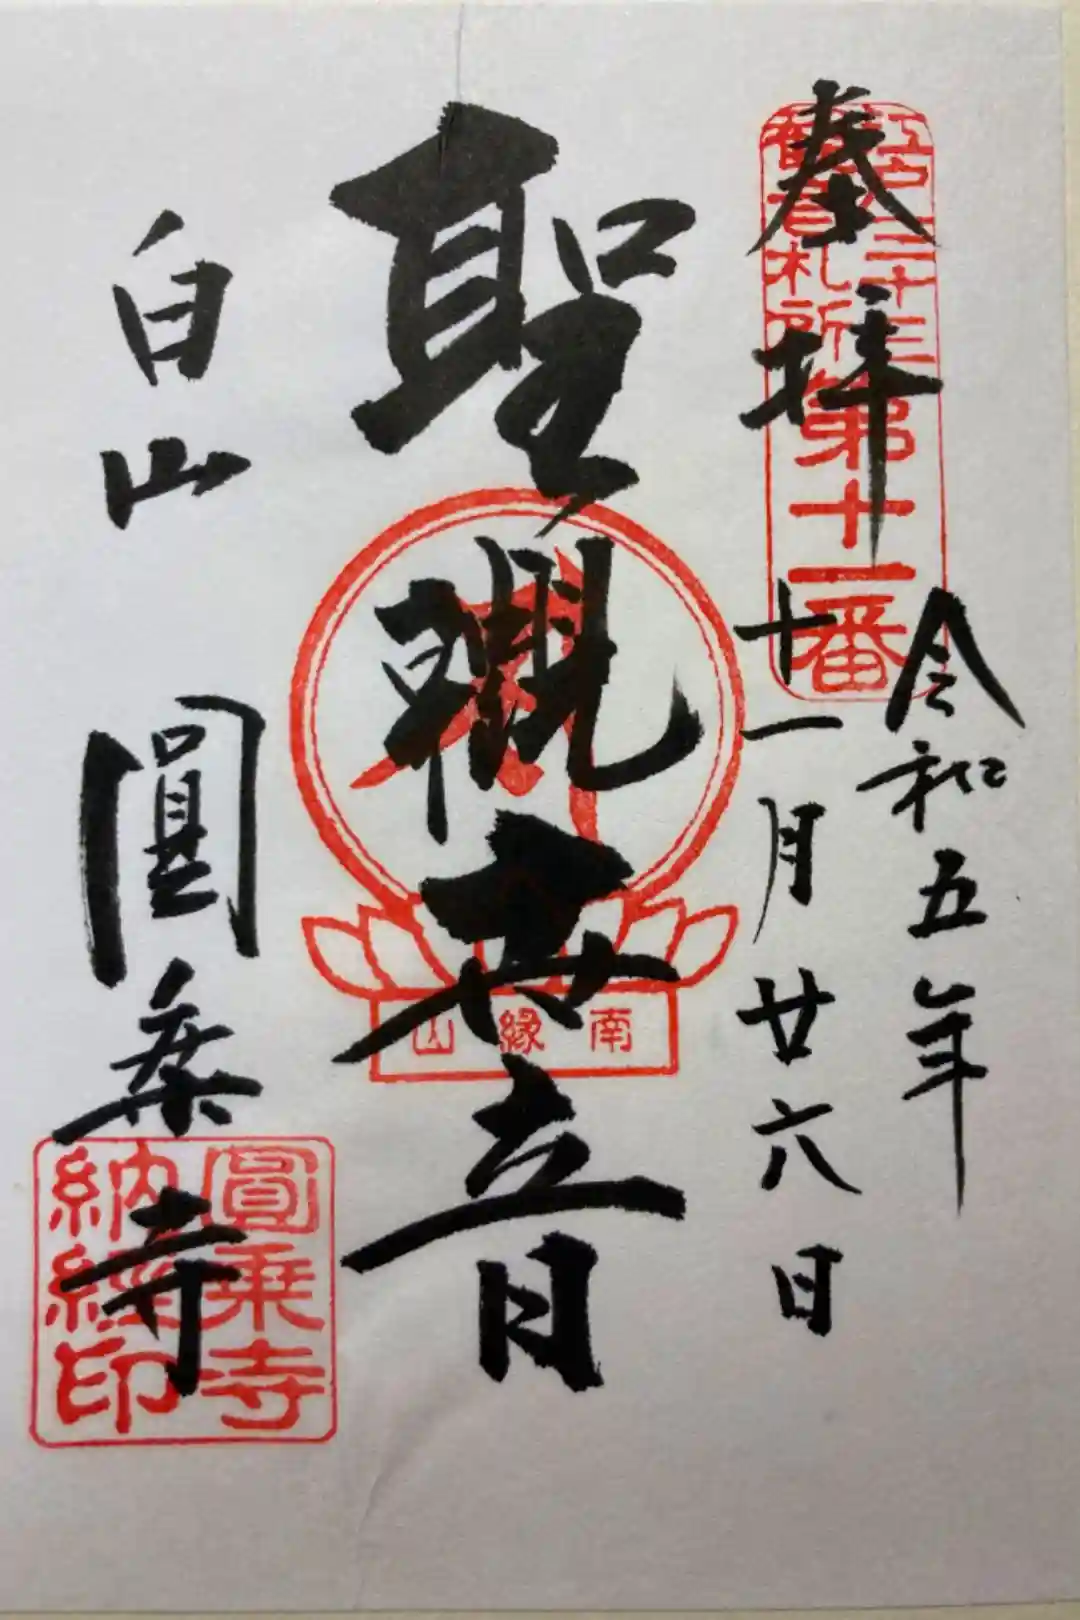 江戸三十三
観音札所
第十一番
奉拝
令和五年
十一月廿六日
聖観世音
南縁山
白山
圓乗寺
圓乗寺
納経印